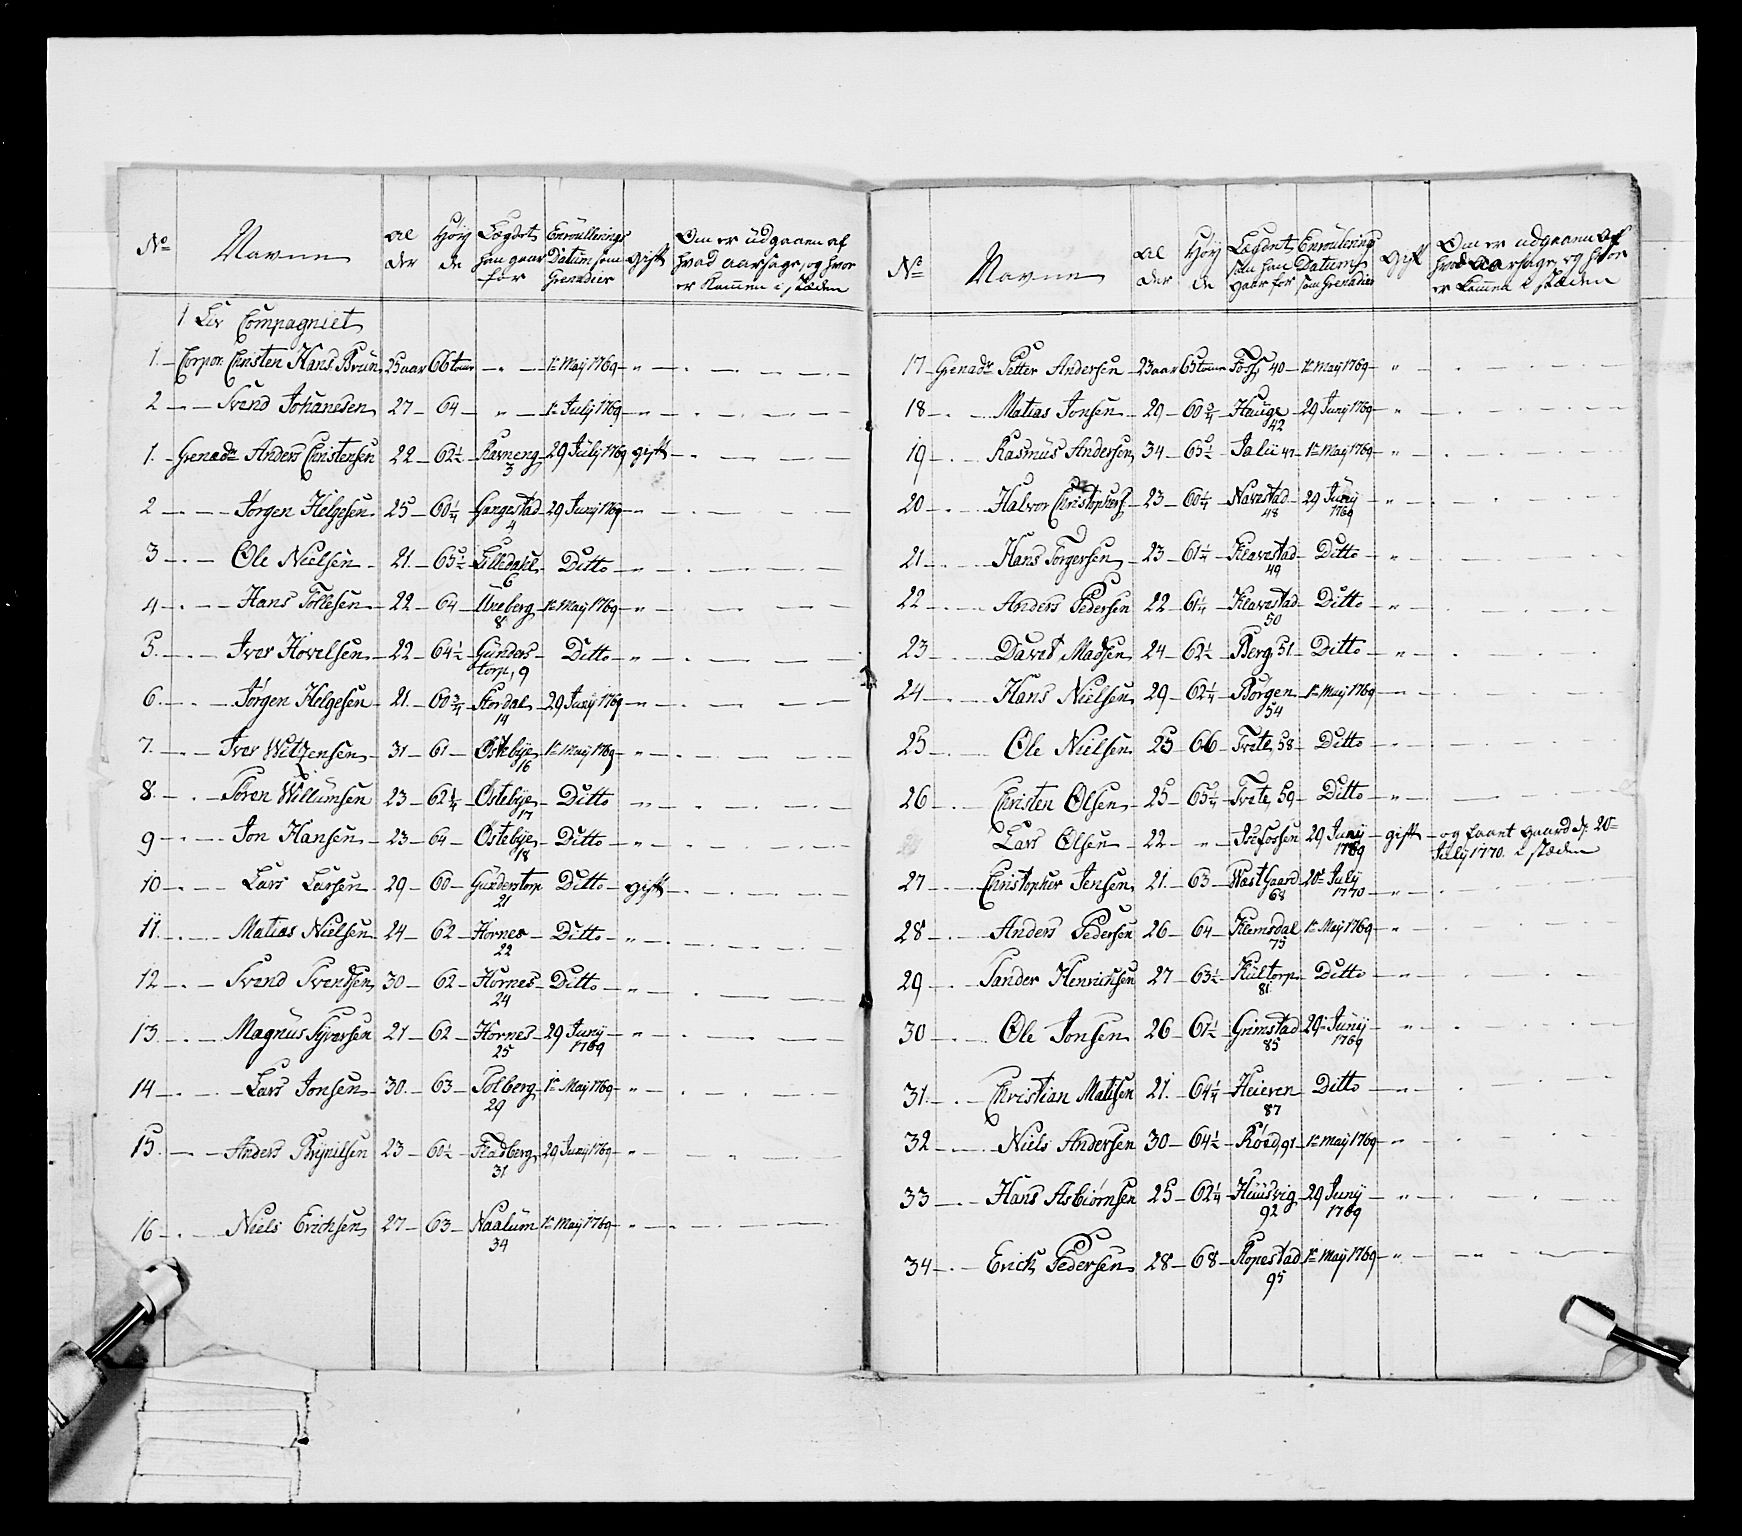 No Navne Al der Høy de Lægdet han gaar for Enroullerings Datum som Grenadier gift Om er udgaaen af hvad aarsage, og hvor er kommen i stæden
1. Liv Compagniet
1. Corpor. Christen Hans Brun 25 aar 66 tom̄er 1te May 1769
2 Svend Johanesen 27 64 1te July 1769
1. Grenadr Anders Christensen 22 62½ Ravneng 3 29 July 1769 gift
2 Jørgen Helgesen 25 60¼ Gangestad 4 29 Juny 1769
3 Ole Nielsen 21 63½ Lilledahl 6 Ditto
4 Hans Tollesen 22 64 Uxeberg 8 1te May 1769
5. Iver Hovelsen 22 64½ Gunders torp, 9 Ditto
6. Jørgen Helgesen 21 60¾ Stordal 14 29 Juny 1769
7. Iver Witzensen 31 61 Østebye 16 1te May 1769
8. Søren Willumsen 23 62¼ Østebye 17 Ditto
9 Jon Hansen 23 64 Østebye 18 Ditto
10 Lars Larsen 29 60 Gunderstorp 21 Ditto gift
11. Matias Nielsen 24 62 Hornes 22 Ditto
12 Svend Svendsen 30 62 Hornes 24 Ditto
13 Magnus Syversen 21 62 Hornes 25 29 Juny 1769
14 Lars Jonsen 30 63 Solberg 29 1te May 1769
15 Anders Brynilsen 23 60½ Fladberg 31 29 Juny 1769
16 Niels Ericksen 27 63 Naalum 34 1te May 1769
No Navne Al der Høy de Lægdet som han gaar for Enroulering Datum som Grenadier gift Om er udgaaen af hvad Aarsage, og hvor er kommen i stæden
17 Grenadr Petter Andersen 23 aar 63 tom̄er Foss 40 1te May 1769
18 Matias Jonsen 29 60¾ Hauge 42 29 Juny 1769
19 Rasmus Andersen 34 63½ Jalii 47 1te May 1769
20 Halvor Christophers 23 60¼ Navestad 48 29 Juny 1769
21 Hans Torgersen 23 61¼ Klavestad 49 Ditto
22 Anders Pedersen 22 61¼ Klavestad 50 Ditto
23 David Madsen 24 62½ Berg 51 Ditto
24 Hans Nielsen 29 62¼ Borgen 54 1te May 1769
25 Ole Nielsen 25 66 Tvete, 58 Ditto
26 Christen Olsen 25 63¼ Tvete, 59 Ditto
Lars Olsen 22 29 Juny 1769 gift og faaet gaard d. 20de July 1770 i stæden
27 Christopher Jensen 21. 63 Wast Gaard 68 20de July 1770
28 Anders Pedersen 26 64 Klemsdal 75 1te May 1769
29 Sander Henrichsen 27 63½ Kultorp 81 Ditto
30 Ole Jonsen 26 61½ Grimstad 85 29de Juny 1769
31. Christian Matisen 21. 64¼ Heieren 87 Ditto
32 Niels Andersen 30 64½ Røed, 91 1te May 1769
33 Hans Asbiørnsen 25 62¼ Huusvig 92 29 Juny 1769
34 Erick Pedersen 28 68 Ropestad 95 1te May 1769